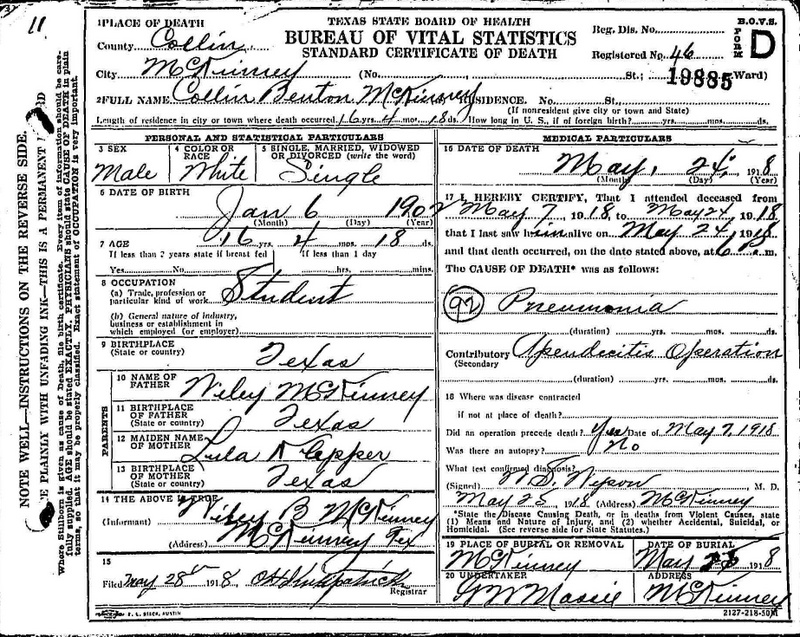 11
TEXAS STATE BOARD OF HEALTH
BUREAU OF VITAL STATISTICS
STANDARD CERTIFICATE OF DEATH
1 PLACE OF DEATH
County Collin
City McKinney (No. St.; Ward)
Reg. Dis. No.
Registered No. 46
19885
B.O.V.S.
FORM D
2 FULL NAME Collin Benton McKinney RESIDENCE. No. St.
(If nonresident give city or town and State)
Length of residence in city or town where death occurred 16 yrs. 4 mos. 18 ds. How long in U. S., if of foreign birth? yrs. mos. ds.
NOTE WELL—INSTRUCTIONS ON THE REVERSE SIDE.
PLAINLY WITH UNFADING INK—THIS IS A PERMANENT
Where Stillbirth is given as cause of Death, file birth certificate. Every item of information should be care-
fully supplied. AGE should be stated EXACTLY. PHYSICIANS should state CAUSE OF DEATH in plain
terms, so that it may be properly classified. Exact statement of OCCUPATION is very important.
PERSONAL AND STATISTICAL PARTICULARS
3 SEX
Male
4 COLOR OR RACE
White
5 SINGLE, MARRIED, WIDOWED OR DIVORCED (write the word)
Single
6 DATE OF BIRTH
Jan 6 1902
(Month) (Day) (Year)
7 AGE
16 yrs. 4 mos. 18 ds.
If less than 2 years state if breast fed
Yes No
If less than 1 day
hrs. mins.
8 OCCUPATION
(a) Trade, profession or particular kind of work Student
(b) General nature of industry, business or establishment in which employed (or employer)
9 BIRTHPLACE
(State or country) Texas
PARENTS
10 NAME OF FATHER Wiley McKinney
11 BIRTHPLACE OF FATHER (State or country) Texas
12 MAIDEN NAME OF MOTHER Lula
13 BIRTHPLACE OF MOTHER (State or country) Texas
14 THE ABOVE IS TRUE
(Informant) Wiley B McKinney
(Address) McKinney Tex
15
Filed May 28th 1918 Registrar
MEDICAL PARTICULARS
16 DATE OF DEATH
May, 24, 1918
(Month) (Day) (Year)
17 I HEREBY CERTIFY, That I attended deceased from
May 7, 1918 to May 24, 1918
that I last saw him alive on May 24, 1918
and that death occurred, on the date stated above, at 6 m.
The CAUSE OF DEATH* was as follows:
92 Pneumonia
(duration) yrs. mos. ds.
Contributory Apendecitis Operation
(Secondary)
(duration) yrs. mos. ds.
18 Where was disease contracted
if not at place of death?
Did an operation precede death? Yes Date of May 7, 1918
Was there an autopsy? No
What test confirmed diagnosis?
(Signed) M. D.
May 25 1918 (Address) McKinney
*State the Disease Causing Death, or in deaths from Violent Causes, state
(1) Means and Nature of Injury, and (2) whether Accidental, Suicidal, or
Homicidal. (See reverse side for State Statutes.)
19 PLACE OF BURIAL OR REMOVAL
McKinney
DATE OF BURIAL
May 1918
20 UNDERTAKER
GW Massie
ADDRESS
McKinney
2127-218-50M